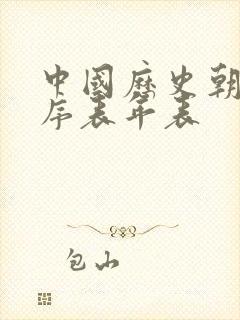 中國歷史朝
序表年表
包山